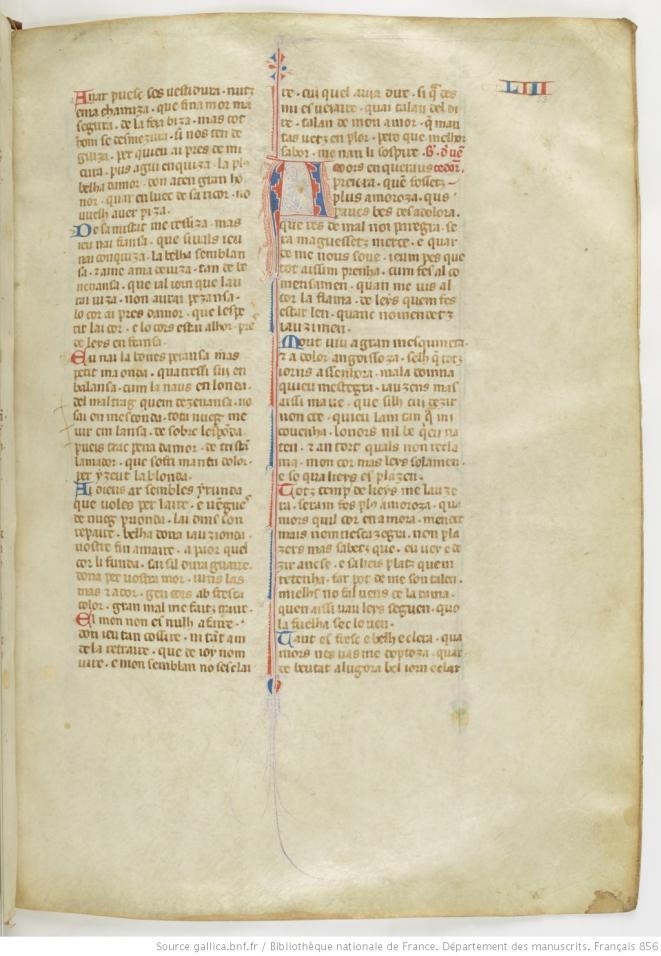 LIII
Anar puesc ses vestidura · nutz
en ma chamiza · que finamor ma
segura · de la freja biza · mas tot
hom se desmezura · si nos ten de
guiza · per quieu ai pres de mi
cura · pus agui enquiza · la plus
belha damor · don aten gran ho
nor · quar en luec de sa ricor · no
vuelh aver piza ·
De samistat me resiza · mas
ieu nai fiansa · que sivals ieu
nai conquiza · la belha semblan
sa · tan de be
nenansa · que ial iorn que lau
rai viza · non aurai pezansa ·
lo cor ai pres damor · que lespe
rit lai cor · e lo cors estai alhor ·
de leys en fransa ·
Eu nai la bonesperansa mas
petit maonda · quatressi sui en
balansa · cum la naus en londa ·
del maltrag quem dezenansa · no
sai on mesconda · tota nueg me
vir em lansa · de sobre lesponda
pueis trac pena damor · de tristan
lamador · que sofri manta dolor ·
per yzeut la blonda ·
Ai dieus ar sembles yrunda
que voles per laire · e vengues
de nueg prionda · lai dins son
repaire · belha dona iauzionda ·
vostre fin amaire · a paor quel
cor li funda · sai sil dura guaire ·
dona per vostramor · iunh las
mas et ador · gen cors ab fresca
color · gran mal me faitz traire ·
El mon non es nulh afaire ·
don ieu tan cossire
de la retraire · que de ioy nom
vire · e mon semblan no sesclai
re · cui quel auia dire · si que des
mi es veiaire · quai talan del di
re · talan de mon amor · que man
tas vetz en plor · pero que melhor
sabor · me nan li sospire ·
Amors enqueraus
preiera · quem fossetz
plus amoroza · qus
paucs bes desadolora ·
que res de mal noi paregra · se
ra maguessetz merce · e quar
de me nous sove · ieum pes que
tot aissim prenha · cum fes al co
mensamen · quan me vis al
cor la flama · de leys quem fes
estar len · quanc nomen detz
iauzimen ·
Mout viu a gran mesquineira
et a dolor angoissoza · selh que totz
iorns assenhora · mala domna
quieu mestegra · iauzens mas
aissi maue · que silh cui dezir
non cre · quieu lam tan que mi
covenha · lonors nil be queu na
ten · et an tort quals non recla
ma · mon cor mas leys solamen ·
e so qua lieys es plazen ·
Totz temps de lieys me lauze
ra · seram fos plus amoroza · qua
mors quil cor en amora · menet
mais nom nescazegui · non pla
zers mas sabetz que · enveia e de
zir ancse · e saleis platz quem
retenha · far pot de me son talen ·
mielhs no fal vens de la rama ·
quen aissi vau leys seguen · quo
la fuelha sec lo ven ·
Tant es fresc e belh e clera · qua
mors nes vas me doptoza · quar
sa beutat alugora bel iorn e clar
Source gallica.bnf.fr / Bibliothèque nationale de France. Département des manuscrits. Français 856